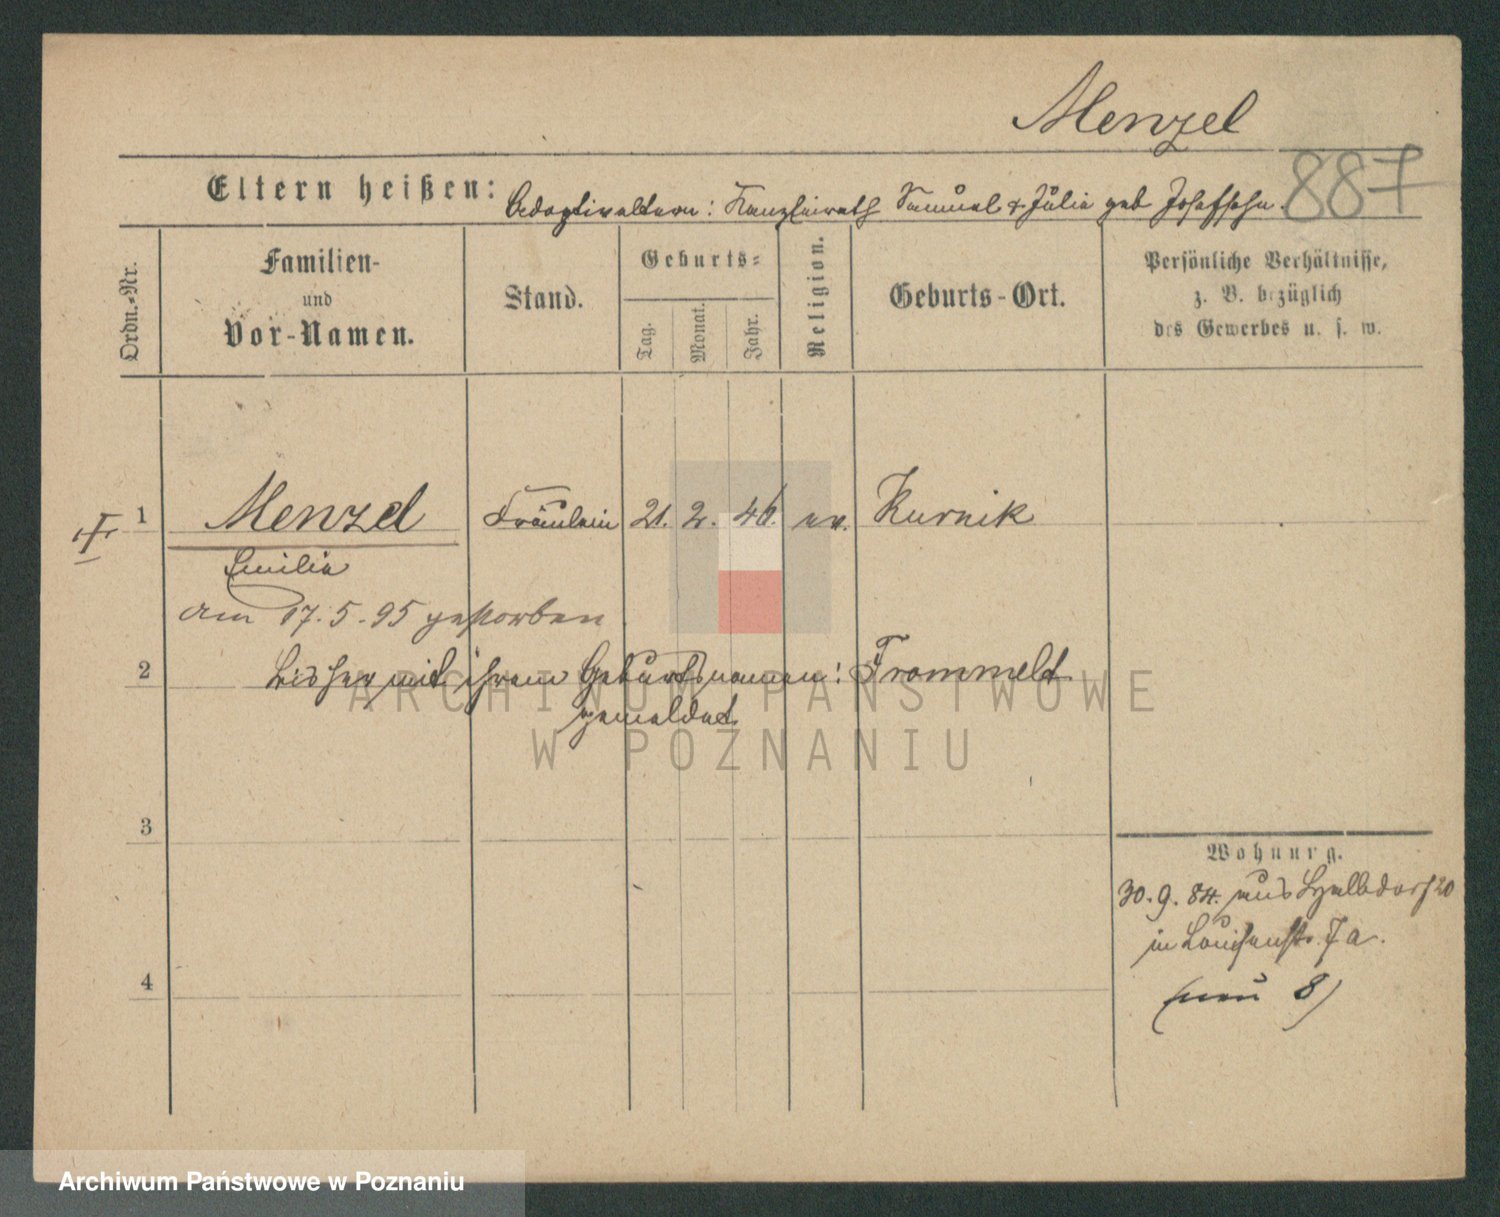 Menzel
887
Eltern heißen: Adoptiveltern: Kanzleirath Samuel & Julie geb Josefsohn.
Ordn.-Nr.
Familien-
und
Vor-Namen.
Stand.
Geburts-
Tag.
Monat.
Jahr.
Religion.
Geburts-Ort.
Persönliche Verhältnisse,
z. B. bezüglich
des Gewerbes u. s. w.
1 Menzel Fräulein 21. 2. 46. ev. Kurnik
Emilie
am 17.5.95 gestorben
2 bisher mit ihrem Geburtsnamen: Frommelt
gemeldet
ARCHIWUM PAŃSTWOWE
W POZNANIU
3
Wohnung.
30. 9. 84. aus 20
in Louisenstr. 7a.
4
(neu 8)
Archiwum Państwowe w Poznaniu